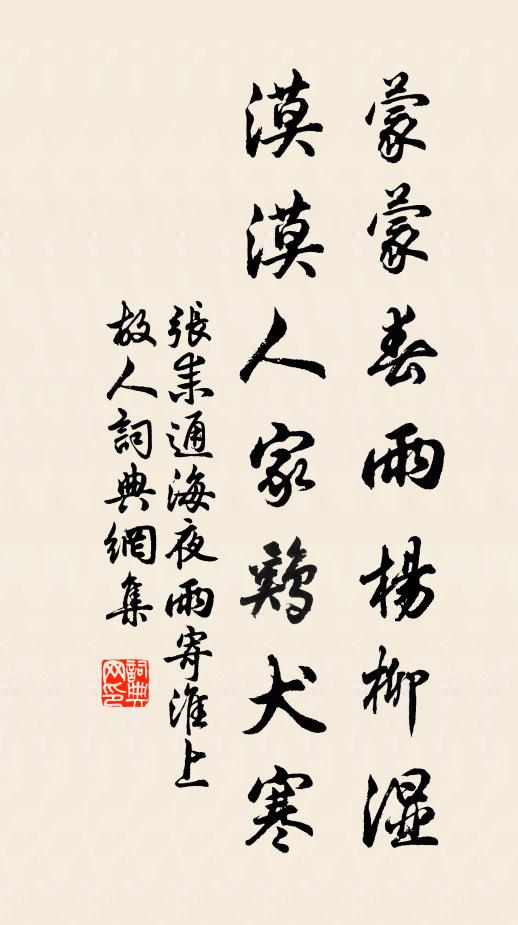 蒙蒙春雨楊柳湿
漠漠人家鷄犬寒
張耒通海夜雨寄淮上
故人詞典網集
詞典网印